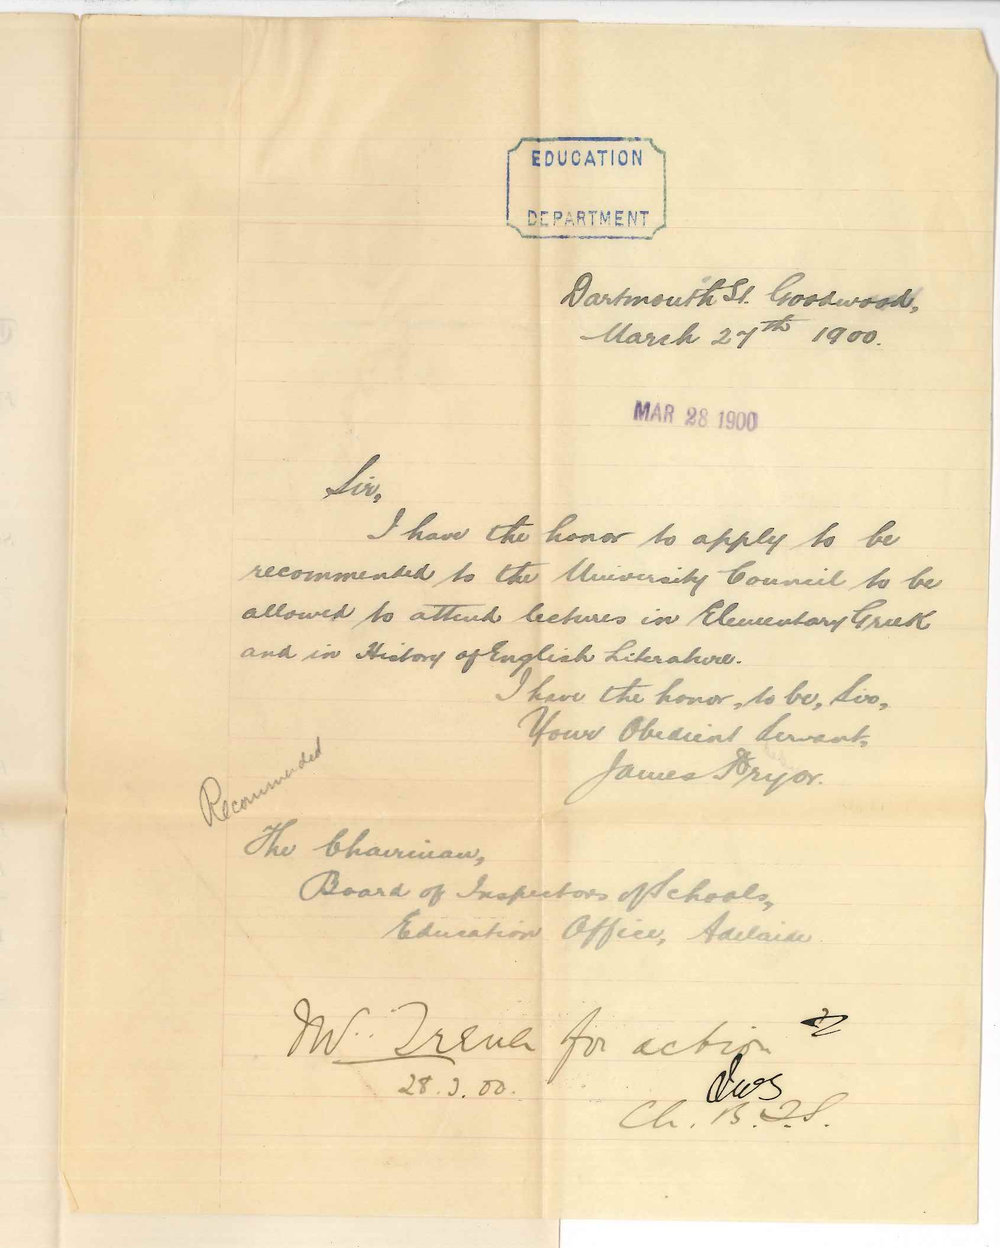 EDUCATION
DEPARTMENT
Dartmouth St. Goodwood,
March 27th 1900.
MAR 28 1900
Sir,
I have the honor to apply to be
recommended to the University Council to be
allowed to attend lectures in Elementary Greek
and in History of English Literature.
I have the honor, to be, Sir,
Your Obedient Servant,
James Pryor.
Recommended
The Chairman,
Board of Inspectors of Schools,
Education Office, Adelaide
for action
28.3.00.
Ch. B.I.S.